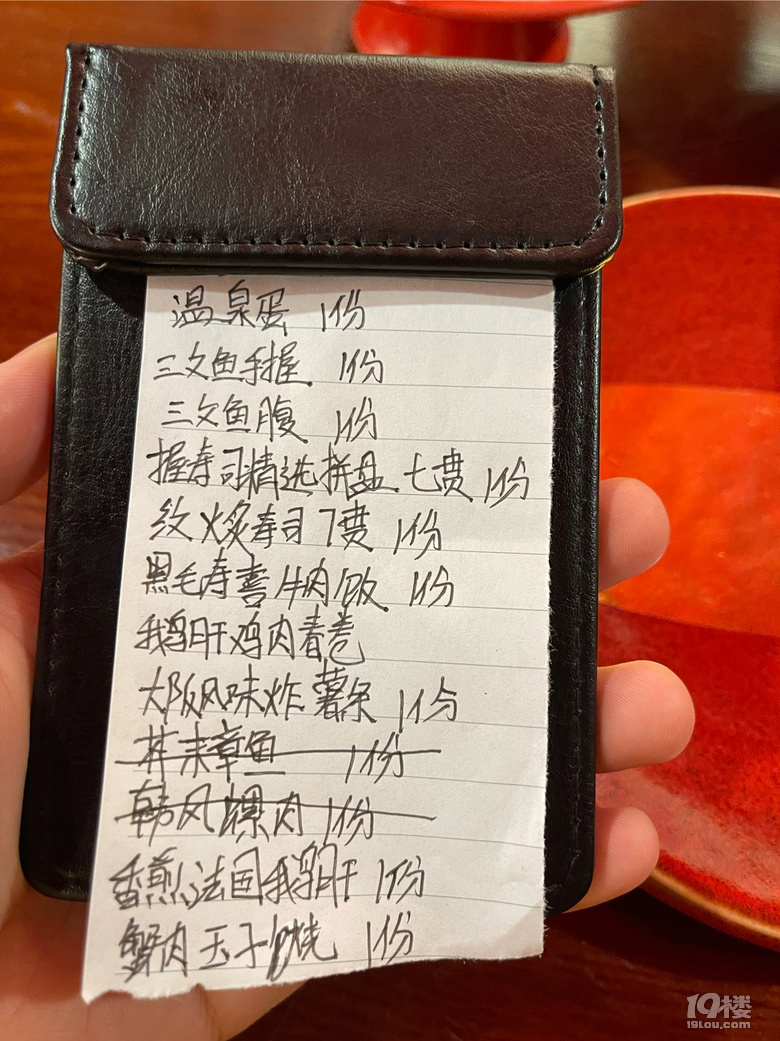 温泉蛋 1份
三文鱼手握 1份
三文鱼腹 1份
握寿司精选拼盘 七贯 1份
纹火炙寿司7贯 1份
黑毛寿喜牛肉饭 1份
鹅肝鸡肉春卷
大阪风味炸薯条 1份
芥末章鱼 1份
韩风螺肉 1份
香煎法国鹅肝 1份
蟹肉玉子烧 1份
19楼
19lou.com